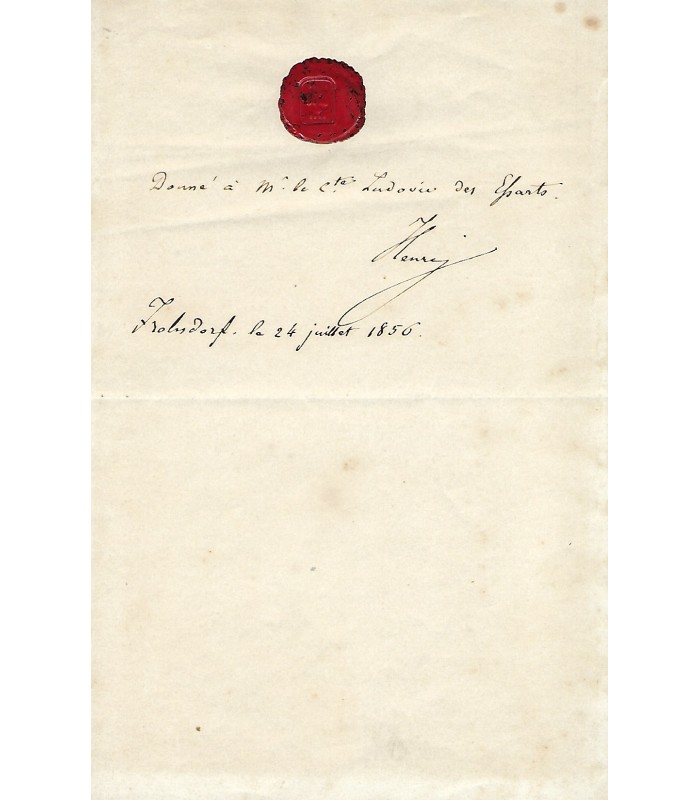 Donné à Mr. le Cte. Ludovic des Essarts.
Henri
Frohsdorf. le 24 juillet 1856.